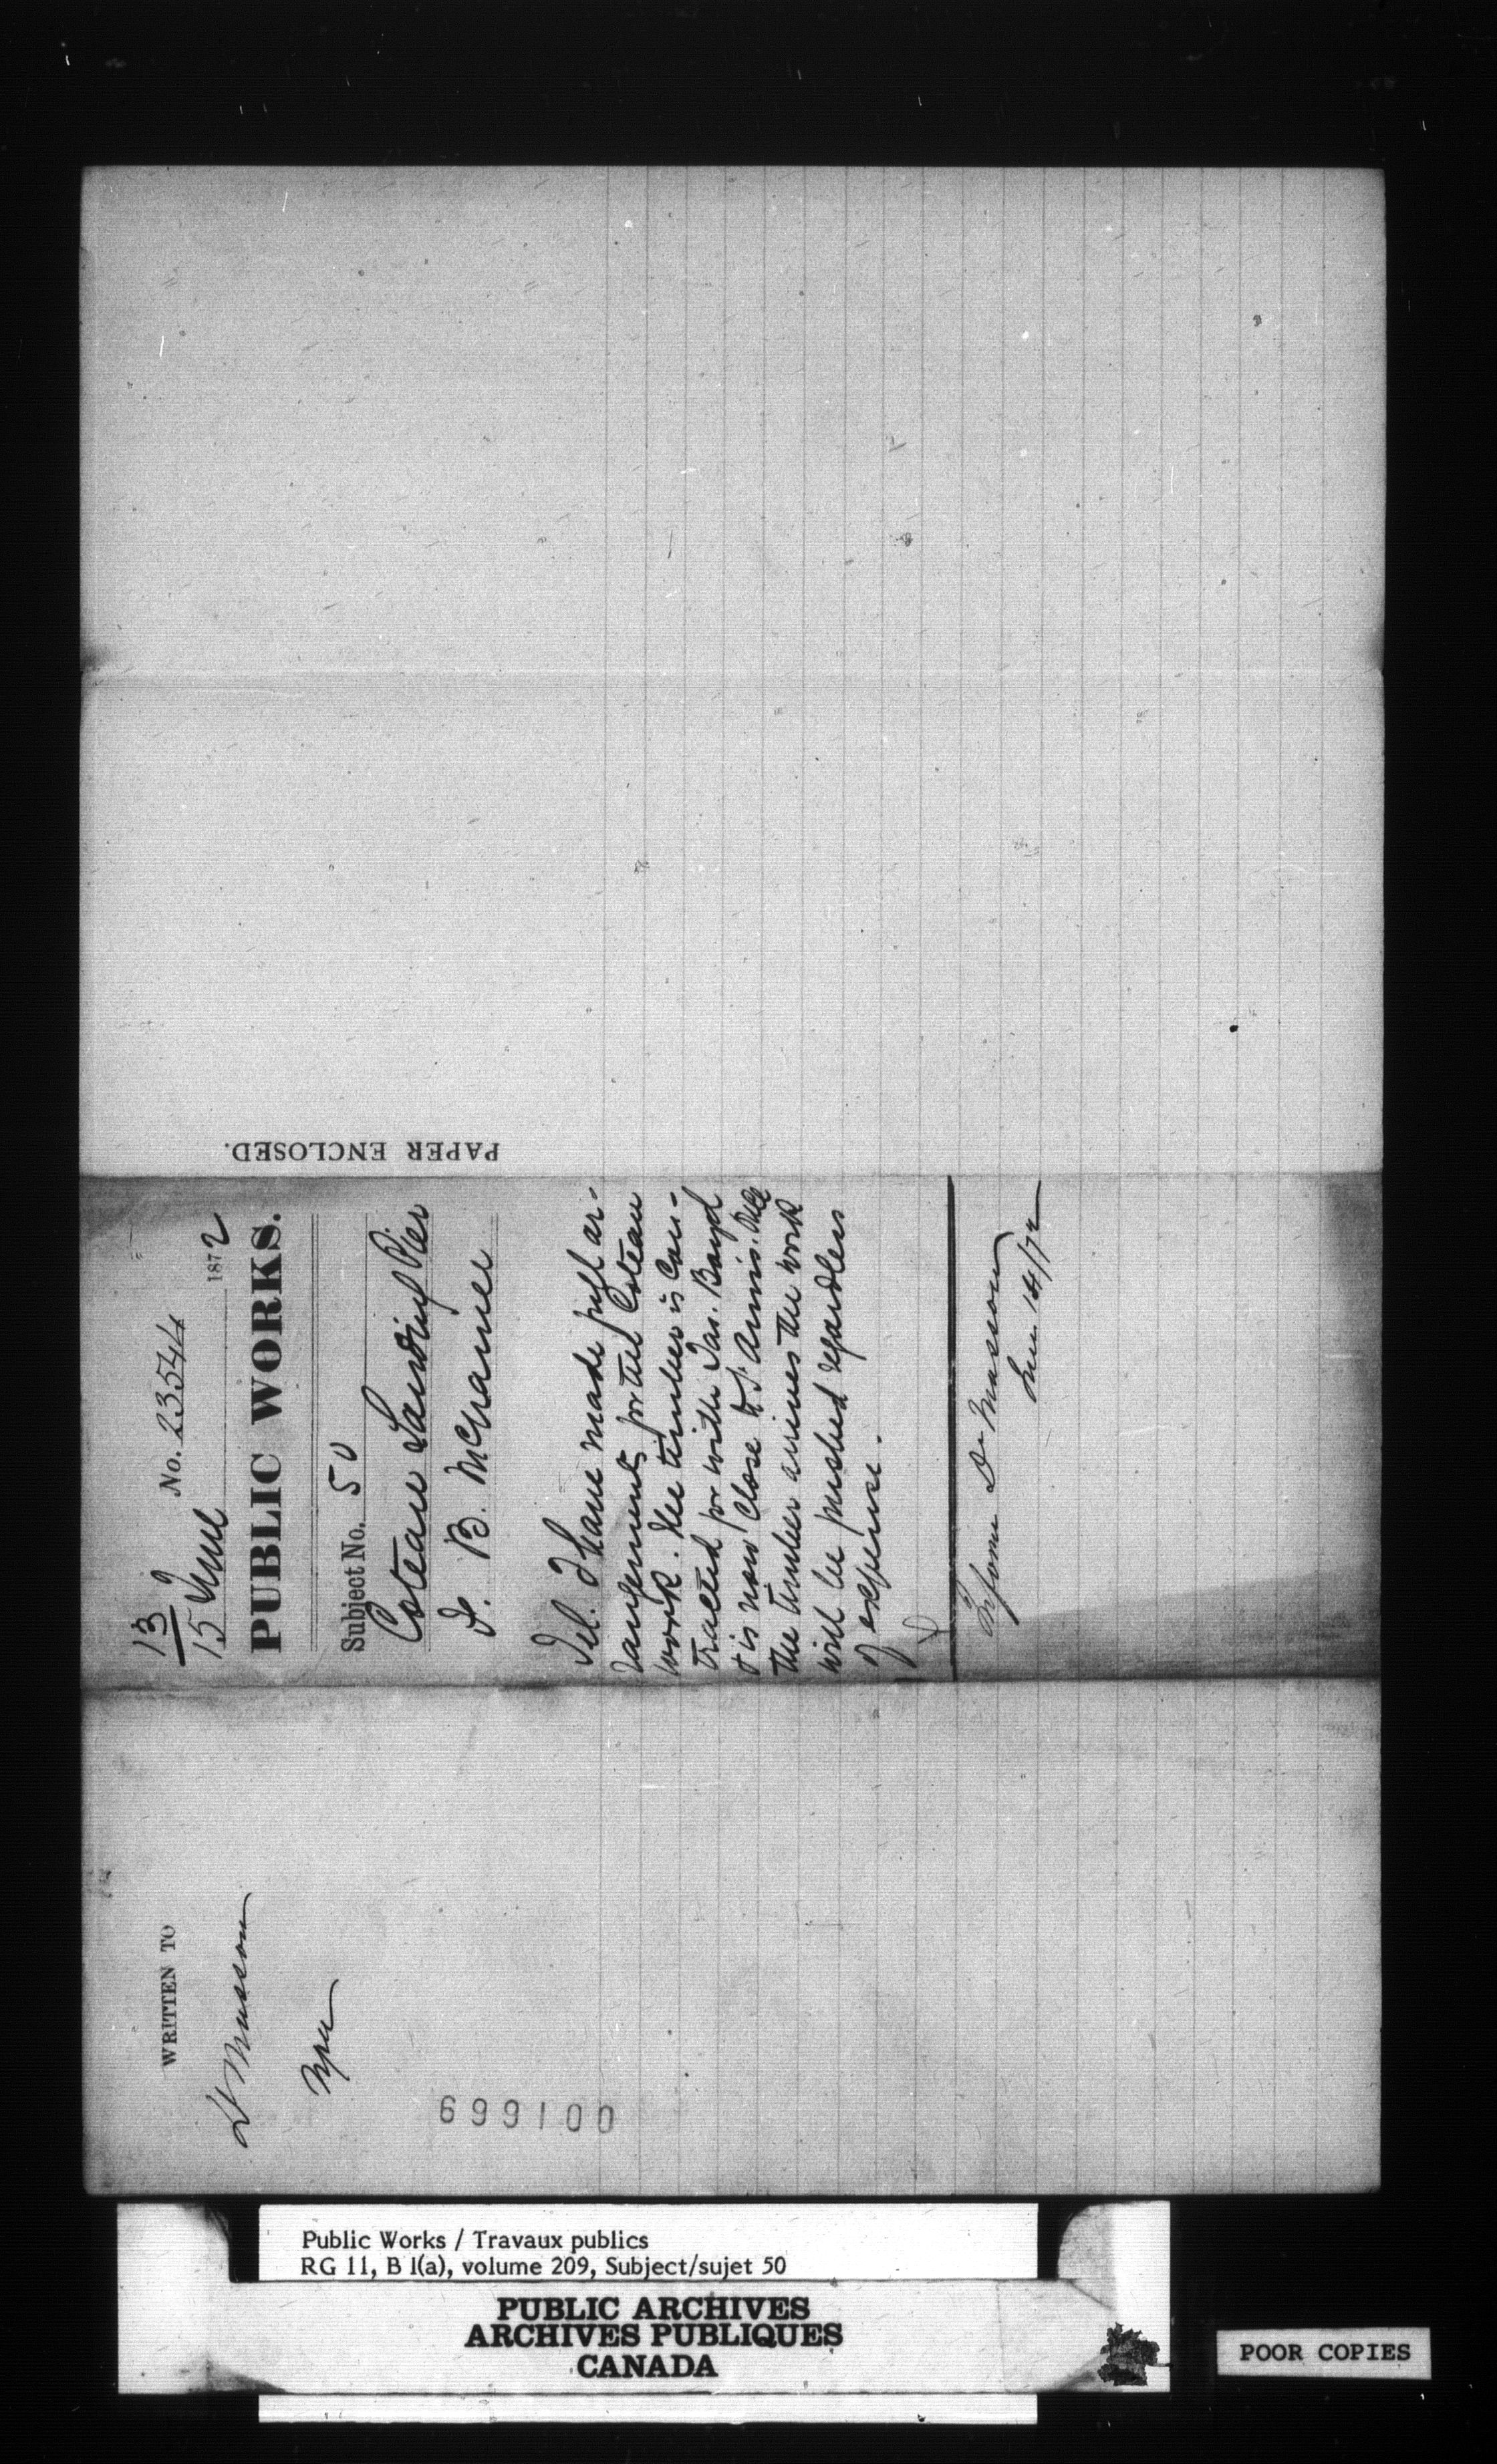 13
No. 23544
15 June 1872
PUBLIC WORKS.
Subject No. 50
Coteau Landing Pier
D. B. McNamee
Tel. I have made full ar-
rangements for the Coteau
work. The timber is con-
tracted for with Jas. Boyd
& is now close to St Annis. Once
the timber arrives the work
will be pushed regardless
of expense.
Inform Dr Masson
June 14/72
PAPER ENCLOSED.
WRITTEN TO
Dr Masson
699100
Public Works / Travaux publics
RG 11, B 1(a), volume 209, Subject/sujet 50
PUBLIC ARCHIVES
ARCHIVES PUBLIQUES
CANADA
POOR COPIES